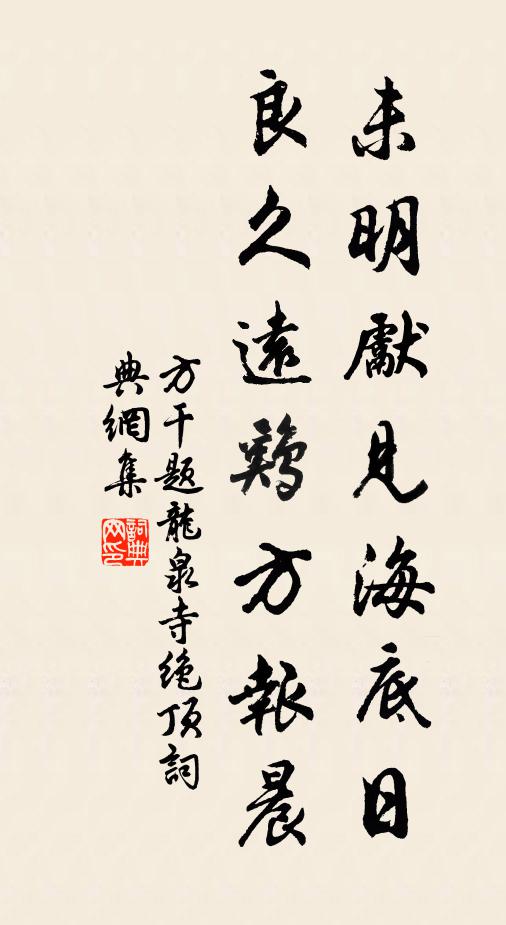 未明獻見海底日
良久遠鷄方報晨
方干題龍泉寺絶頂詞
典網集
詞典网印